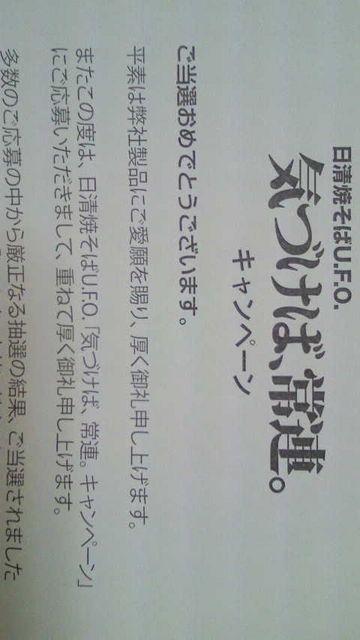 日清焼そばU.F.O.
気づけば、常連。
キャンペーン
ご当選おめでとうございます。
平素は弊社製品にご愛願を賜り、厚く御礼申し上げます。
またこの度は、日清焼そばU.F.O.「気づけば、常連。キャンペーン」
にご応募いただきまして、重ねて厚く御礼申し上げます。
多数のご応募の中から厳正なる抽選の結果、ご当選されました